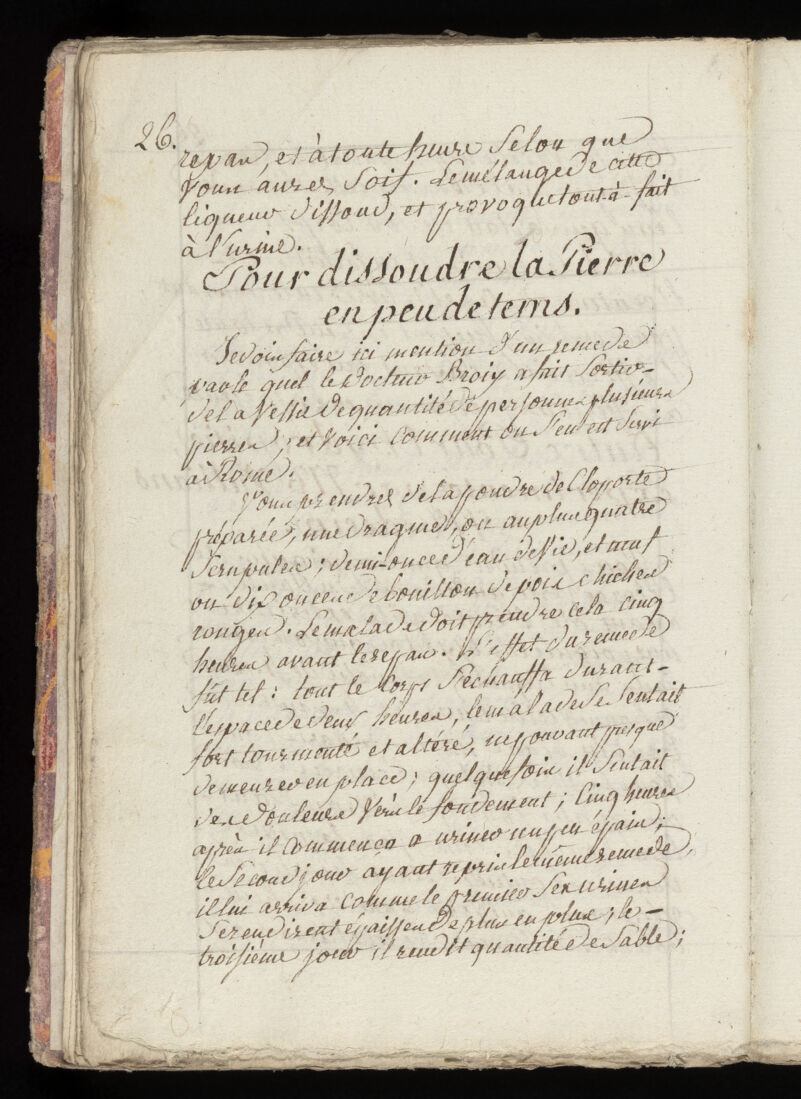 26.
repas, et à toute heure Selon que
vous aurez Soif. Le mélange de cette
liqueur dissoud, et provoque tout-à-fait
à l'urine.
Pour dissoudre la Pierre
en peu de tems.
Je dois faire ici mention d'un remede
par le quel le Docteur Broix a fait Sortir
de la Vessie de quantité de personnes plusieurs
pierres; et Voici comment on S'en est Servi
à Rome.
Vous prendrez de la poudre de Cloporte
préparée, une dragme, ou au plus quatre
Scrupules; demi-once d'eau de Vie, et neuf
ou dix onces de bouillon de pois chiches
rouges. Le malade doit prendre cela cinq
heures avant le repas. L'effet du remede
fût tel: tout le Corps S'échauffa durant
l'espace de deux heures, le malade Se Sentait
fort tourmenté et altéré, ne pouvant presque
demeurer en place; quelquefois il Sentait
des douleurs Vers le fondement; Cinq heures
après il commença a uriner un peu épais;
le Second jour ayant repris le même remede,
il lui arriva comme le premier Ses urines
Se rendirent épaisses de plus en plus; le
troisiéme jour il rendit quantité de Sable;